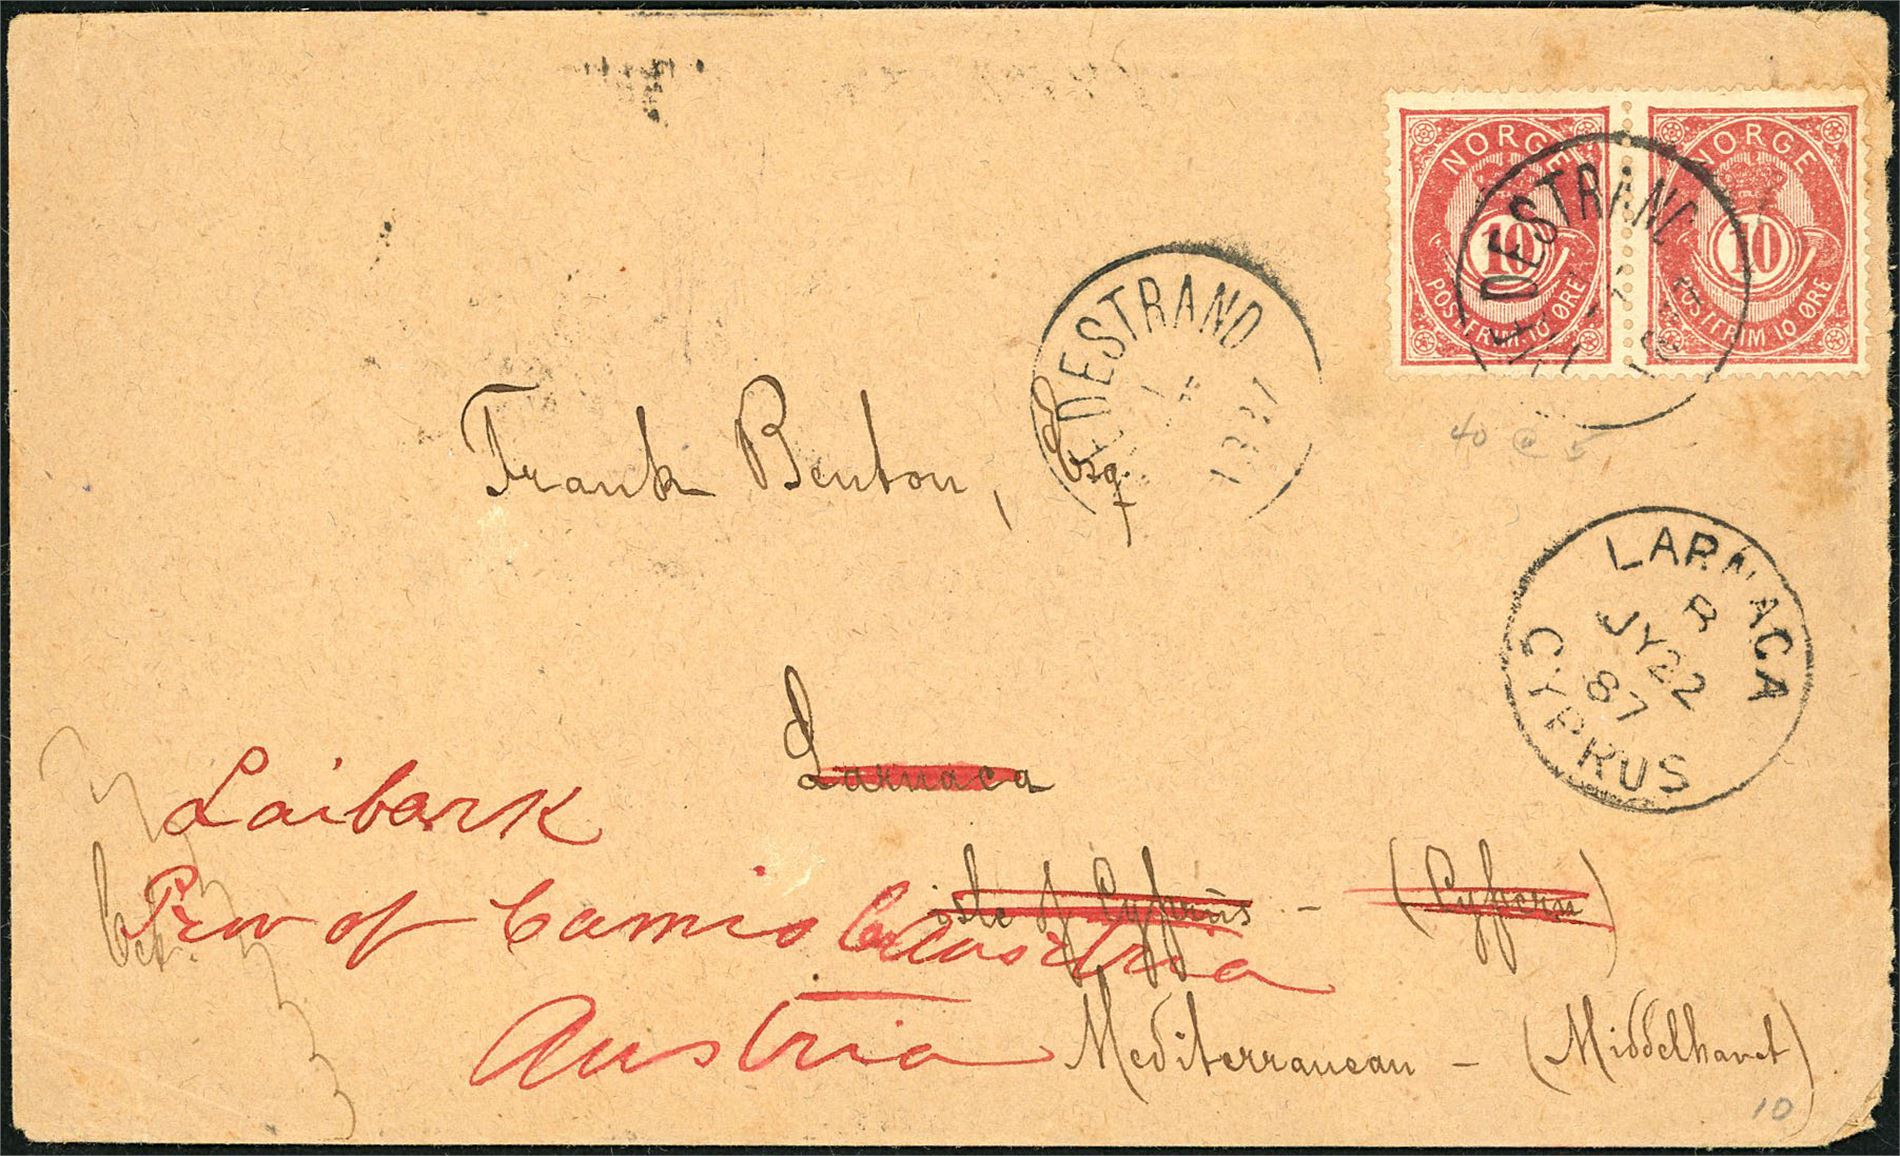 NORGE
10
POSTFRIM. 10 ØRE
NORGE
10
POSTFRIM 10 ØRE
DESTRAND
EDESTRAND
1887
40 @
Frank Benton, Esq.
LARNACA
R
JY 22
87
CYPRUS
Larnaca
Laibark
isle of Cyprus - (Cypern)
Prov of Carniola Austria
Austria
Mediterranean - (Middelhavet)
10